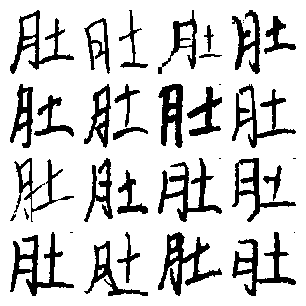 肚肚肚肚
肚肚肚肚
肚肚肚肚
肚肚肚肚